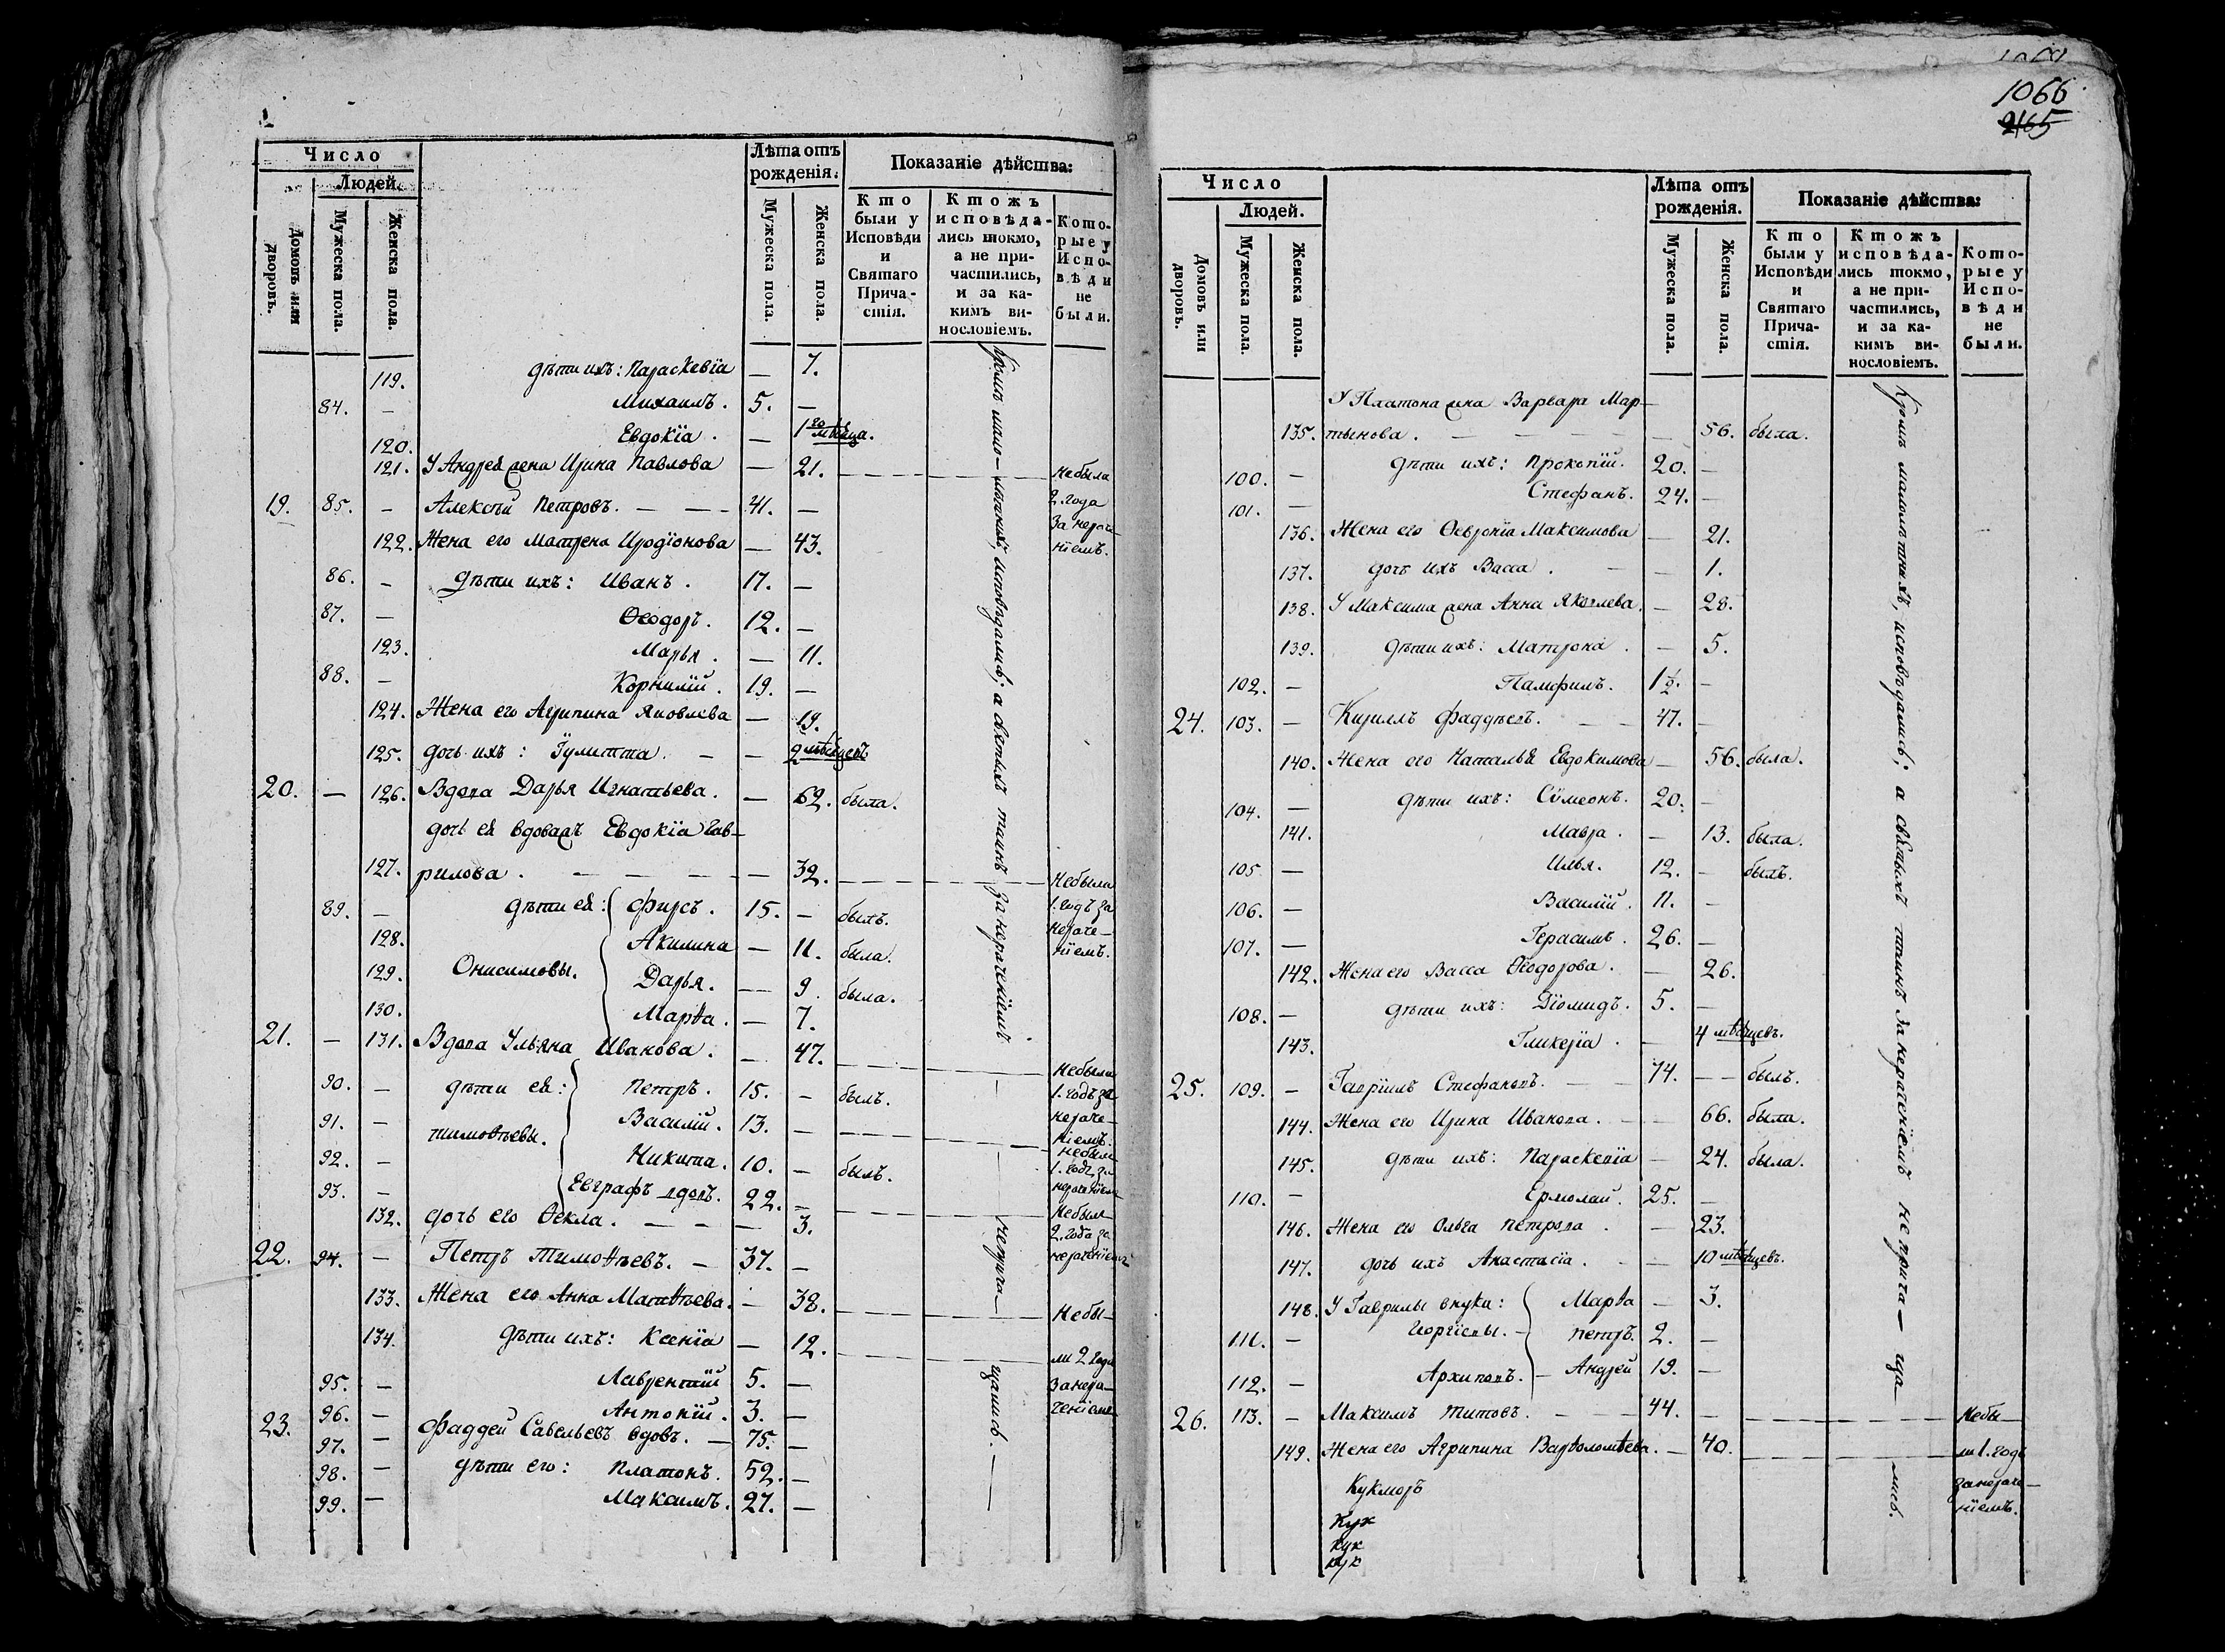 Число
Людей.
Домовъ или дворовъ.
Мужеска пола.
Женска пола.
Лѣта отъ рожденія.
Мужеска пола.
Женска пола.
Показаніе дѣйства:
Кто были у Исповѣди и Святаго Прича-стія.
Ктожъ исповѣда-лись токмо, а не при-частились, и за ка-кимъ ви-нословіемъ.
Кото-рые у Испо-вѣди не были.
119. дѣти ихъ: Параскевіа — 7.
84. — Михаилъ. 5. —
120. Евдокіа. — 1го мѣсяца.
121. У Андрея жена Ирина Павлова — 21. Небыла
19. 85. — Алексѣй Петровъ. — — — 41. — 2. года
за нераче-
122. Жена его Матрена Иродіонова — 43. ніемъ.
86. — дѣти ихъ: Иванъ. 17. —
87. — Ѳеодоръ. 12. —
123. Марья. — 11.
88. — Корнилій. 19. —
124. Жена его Агрипина Яковлева — 19.
125. дочь ихъ: Іулитта. — — 2 мѣсяцевъ
20. — 126. Вдова Дарья Игнатьева. — 62. была.
дочь ея вдовая Евдокіа Гав-
127. рилова. — — — — — 32. Небыла
89. — дѣти ея: Фирсъ. 15. — былъ. 1. годъ за
нераче-
128. Акилина — 11. была. ніемъ.
129. Онисимовы. Дарья. — 9. была.
130. Марѳа. — 7.
21. — 131. Вдова Ульяна Иванова. — 47. Небыла
90. — дѣти ея: Петръ. 15. — былъ. 1. годъ за
91. — Тимоѳѣевы. Василій. 13. — нераче-
ніемъ.
Небылъ
92. — Никита. 10. — былъ. 1. годъ за
93. — Евграфъ вдовъ. 22. — нераченіемъ
132. дочь его Ѳекла. — — — 3. Небылъ
2. года за
22. 94. — Петръ Тимоѳѣевъ. — 37. — нераченіемъ
133. Жена его Анна Матѳѣева. — 38. Небы-
134. дѣти ихъ: Ксеніа — 12. ли 2 года
95. — Лаврентій 5. — занера-
96. — Антоній. 3. — ченіемъ
23. 97. — Фаддей Савельевъ вдовъ. — 75. —
98. — дѣти его: Платонъ. 52. —
99. — Максимъ. 27. —
Кромѣ мало-лѣтнихъ, исповѣдались; а святыхъ таинъ за нераченіемъ неприча-щались.
1066
2165
Число
Людей.
Домовъ или дворовъ.
Мужеска пола.
Женска пола.
Лѣта отъ рожденія.
Мужеска пола.
Женска пола.
Показаніе дѣйства:
Кто были у Исповѣди и Святаго Прича-стія.
Ктожъ исповѣда-лись токмо, а не при-частились, и за ка-кимъ ви-нословіемъ.
Кото-рые у Испо-вѣди не были.
У Платона жена Варвара Мар-
135. тынова. — — — — — 56. была.
100. — дѣти ихъ: Прокопій. 20. —
101. — Стефанъ. 24. —
136. Жена его Ѳевроніа Максимова — 21.
137. дочь ихъ Васса. — — 1.
138. У Максима жена Анна Яковлева. — 28.
139. дѣти ихъ: Матрона. — 5.
102. — Памфилъ. 1½. —
24. 103. — Кириллъ Фаддѣевъ. — — 47. —
140. Жена его Наталья Евдокимова — 56. была.
104. — дѣти ихъ: Сѵмеонъ. 20. —
141. Мавра. — 13. была.
105 — Илья. 12. — былъ.
106. — Василій. 11. —
107. — Герасимъ. 26. —
142. Жена его Васса Ѳеодорова. — 26.
108. — дѣти ихъ: Діомидъ. 5. —
143. Гликеріа. — 4 мѣсяцевъ.
25. 109. — Гавріилъ Стефановъ. — — 74. — — былъ.
144. Жена его Ирина Иванова. — — 66. была.
145. дѣти ихъ: Параскевіа — 24. была.
110. — Ермолай. 25. —
146. Жена его Ольга Петрова. — 23.
147. дочь ихъ Анастасіа. — — 10 мѣсяцевъ.
148. У Гаврилы внуки: Марѳа — 3.
111. — Георгіевы. — Петръ. 2. —
112. — Архиповъ. — Андрей 19. —
26. 113. — Максимъ Титовъ. — — — 44. — Небы-
149. Жена его Агрипина Варѳоломѣева. — 40. ли 1. годъ
занераче-
ніемъ.
Кукморъ
Кук
Кук
Кук
Кромѣ малолѣтнихъ, исповѣдались; а святыхъ таинъ за нераченіемъ неприча-ща-лись.